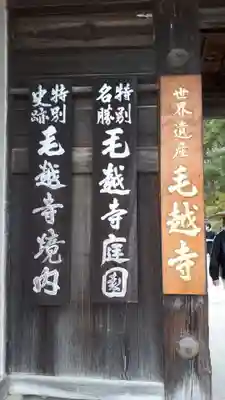 世界遺産 毛越寺
特別名勝 毛越寺庭園
特別史跡 毛越寺境内